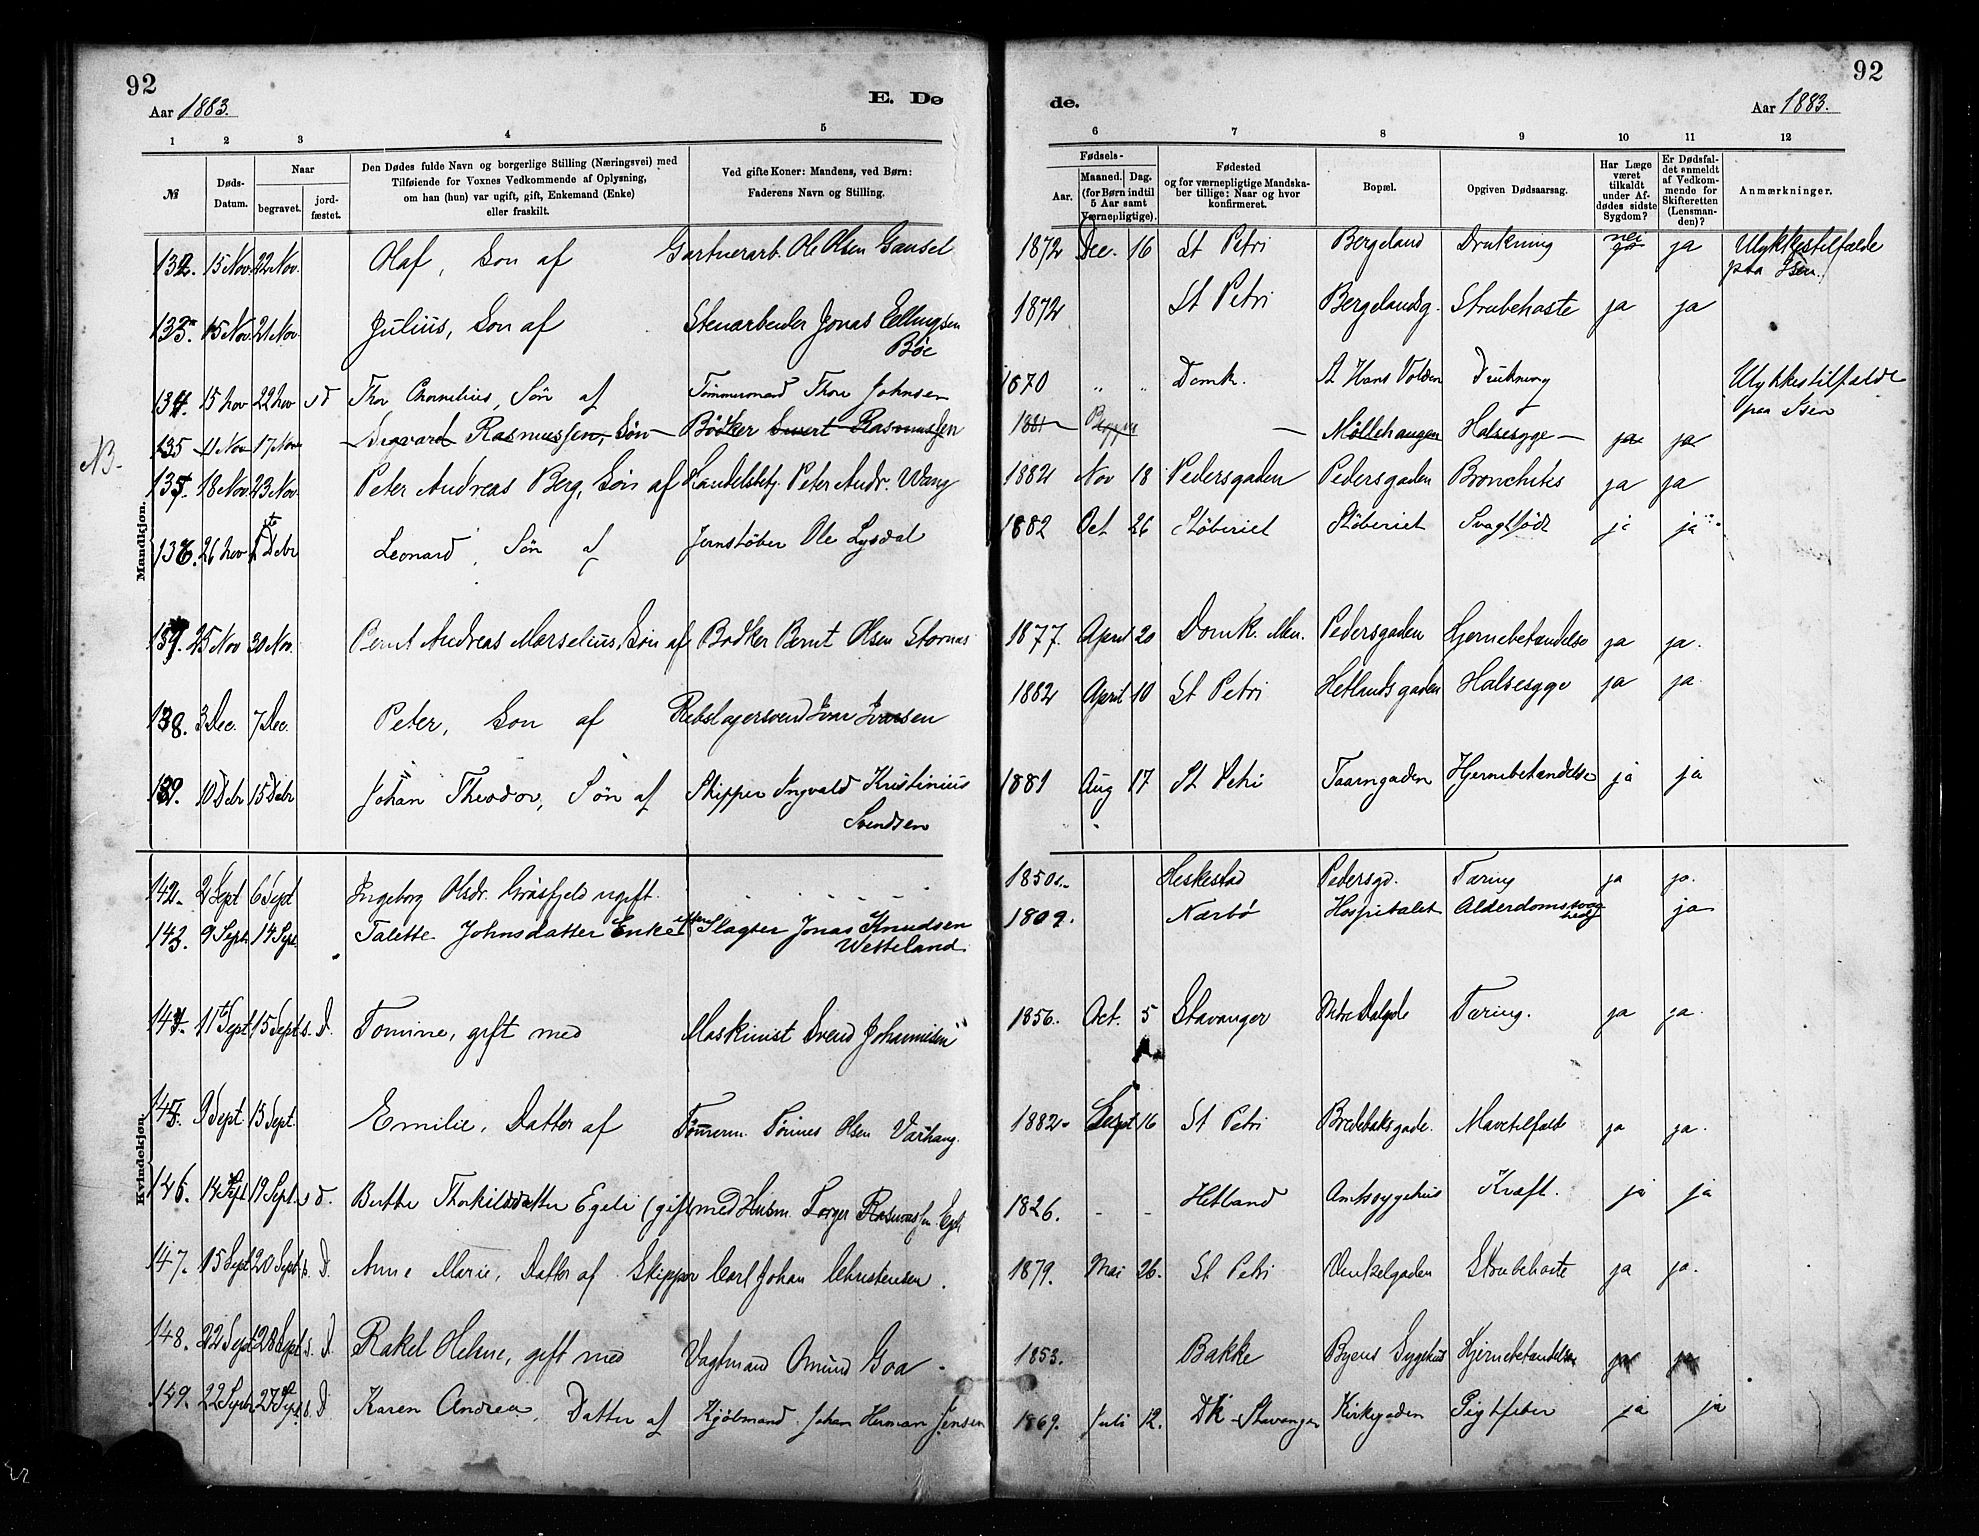 92
Aar 1883.
E. Dø
de.
92
Aar 1883.
1 2 3 4 5 6 7 8 9 10 11 12
№
Døds-Datum.
Naar
begravet.
jord-fæstet.
Den Dødes fulde Navn og borgerlige Stilling (Næringsvei) med
Tilføiende for Voxnes Vedkommende af Oplysning,
om han (hun) var ugift, gift, Enkemand (Enke)
eller fraskilt.
Ved gifte Koner: Mandens, ved Børn:
Faderens Navn og Stilling.
Fødsels-
Aar.
Maaned. Dag.
(for Børn indtil
5 Aar samt
Værnepligtige).
Fødested
og for værnepligtige Mandska-
ber tillige: Naar og hvor
konfirmeret.
Bopæl.
Opgiven Dødsaarsag.
Har Læge
været
tilkaldt
under Af-
dødes sidste
Sygdom?
Er Dødsfal-
det anmeldt
af Vedkom-
mende for
Skifteretten
(Lensman-
den)?
Anmærkninger.
Mandkjøn.
132. 15 Nov. 22 Nov. Olaf, Søn af Gartnerarb. Ole Olsen Gausel 1872 Dec. 16 St Petri Bergeland Drukning nei ja Ulykkestilfælde
paa Isen.
133. 15 Nov. 21 Nov. Julius, Søn af Stenarbeider Jonas Ellingsen
Bøe 1872 St Petri Bergelandsg. Strubehoste ja ja
134. 15 Nov 22 Nov s d Thor Cornelius, Søn af Tømmermand Thore Johnsen 1870 " " Domk. St Hans Volden Drukning Ulykkestilfælde
paa Isen
NB.
135 11 Nov 17 Nov Sigvard Rasmussen, Søn Bødker Sivert Rasmussen 1881 — Møllehaugen Halsesyge — ja ja
135. 18 Nov. 23 Nov. Peter Andreas Berg, Søn af Handelsbetj. Peter Andr. Wang 1882 Nov 18 Pedersgaden Pedersgaden Bronchites ja ja
136. 26 Nov 1ste Debr Leonard, Søn af Jernstøber Ole Lysdal 1882 Oct 26 Støberiet Støberiet Svagtfødt ja ja
137. 25 Nov 30 Nov. Bernt Andreas Marselius, Søn af Bødker Bernt Olsen Stornæs 1877. April 20 Domk. Men. Pedersgaden Hjernebetændelse ja ja.
138. 3 Dec. 7 Dec. Peter, Søn af Rebslagersvend Ivar Ivarsen 1882 April 10 St Petri Hetlandsgaden Halsesyge ja ja
139. 10 Debr 15 Debr Johan Theodor, Søn af Skipper Ingvald Kristinius
Svendsen 1881 Aug 17 St Petri Taarngaden Hjernebetændelse ja ja
Kvindekjøn.
142. 2 Sept 6 Sept Ingeborg Olsdr. Gråsfjeld ugift. - - - - 1850. Heskestad Pedersgd. Tæring ja ja.
143. 9 Sept. 14 Sept. Talette Johnsdatter Enke efter Slagter Jonas Knudsen
Wetteland 1809. Nærbø Hospitalet Alderdomssvag
hed ja
144. 11 Sept. 15 Sept s. D. Tomine, gift med Maskinist Svend Johannesen 1856. Oct. 5 Stavanger Tæring. ja ja.
145. 9 Sept 15 Sept. Emilie, Datter af Tømrerm. Tønnes Olsen Varhaug. 1882. Sept 16 St Petri Bredebaksgade. Mavetilfælde ja ja.
146. 14 Sept. 19 Sept. s d. Berthe Thorkildsdatter Egeli (gift med Husm. Torger Rasmussen Egeli 1826. - - Hetland Amtssygehus Kræft. ja ja
147. 15 Sept 20 Sept s. D. Anne Marie, Datter af Skipper Carl Johan Christensen. 1879. Mai 26. St Petri Vinkelgaden Strubehoste ja ja.
148. 22 Sept 28 Sept s. D. Rakel Helene, gift med Vagtmand Omund Goa - 1853. Bakke Byens Sygehus Hjernebetændelse ja ja
149. 22 Sept 27 Sept s. D Karen Andrea, Datter af Kjøbmand. Johan Herman Jensen 1869. Juli 12. DK - Stavanger Kirkegaden Gigtfeber ja ja